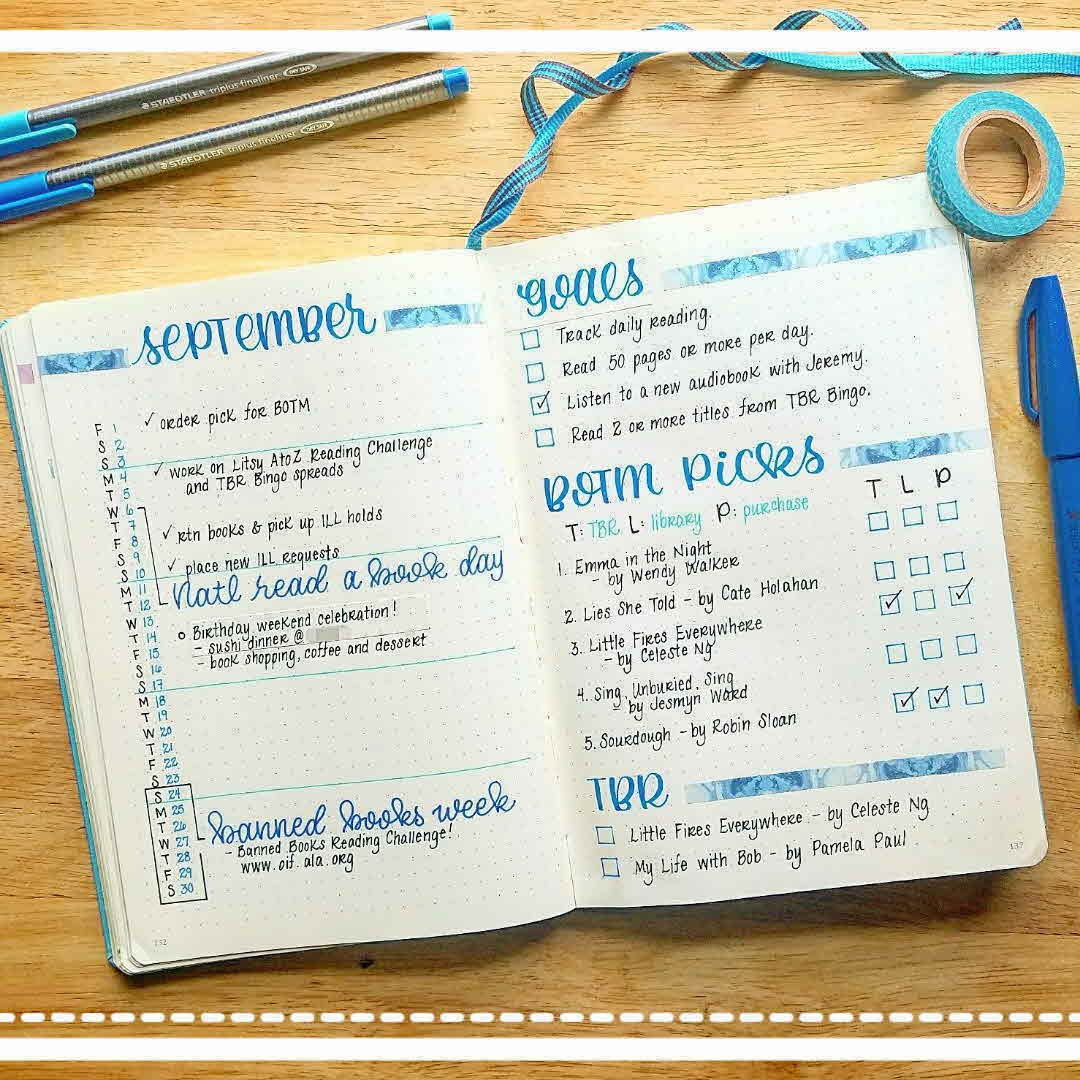 STAEDTLER triplus fineliner DRY SAFE
STAEDTLER triplus fineliner DRY SAFE
SEPTEMBER
F 1
S 2
S 3
M 4
T 5
W 6
T 7
F 8
S 9
S 10
M 11
T 12
W 13
T 14
F 15
S 16
S 17
M 18
T 19
W 20
T 21
F 22
S 23
S 24
M 25
T 26
W 27
T 28
F 29
S 30
✓ order pick for BOTM
✓ work on Litsy AtoZ Reading Challenge
and TBR Bingo spreads
✓ rtn books & pick up ILL holds
✓ place new ILL requests
Natl read a book day
Birthday weekend celebration!
- sushi dinner @
- book shopping, coffee and dessert
banned books week
- Banned Books Reading Challenge!
www.oif.ala.org
132
GOALS
Track daily reading.
Read 50 pages or more per day.
Listen to a new audiobook with Jeremy.
Read 2 or more titles from TBR Bingo.
BOTM PICKS
T: TBR L: library P: purchase
T L P
1. Emma in the Night
- by Wendy Walker
2. Lies She Told - by Cate Holahan
3. Little Fires Everywhere
- by Celeste Ng
4. Sing, Unburied, Sing
- by Jesmyn Ward
5. Sourdough - by Robin Sloan
TBR
Little Fires Everywhere - by Celeste Ng
My Life with Bob - by Pamela Paul
137